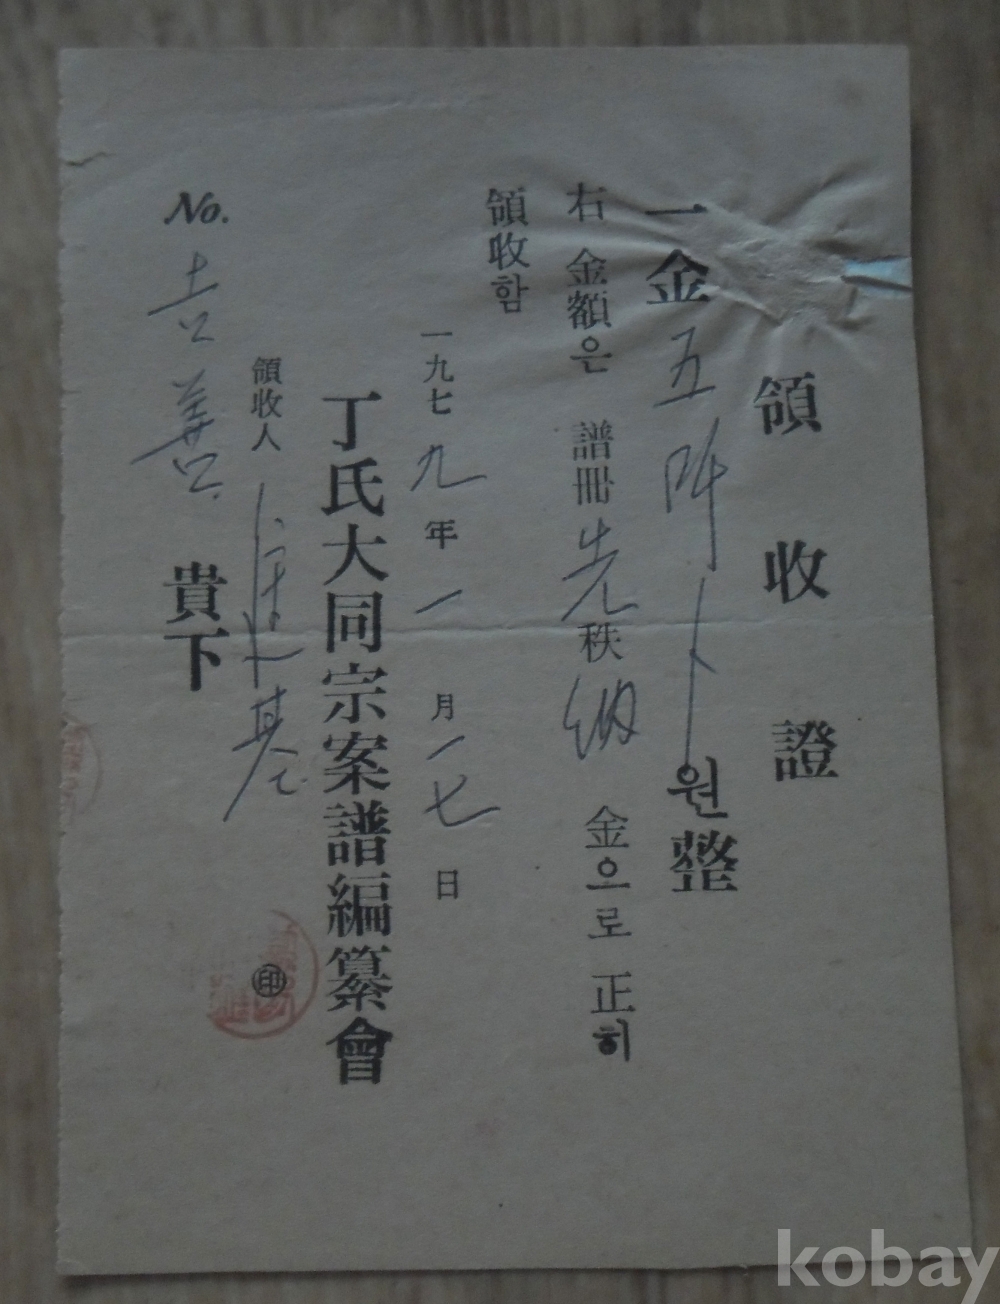 領收證
一金五阡 원整
右金額은 譜冊先秩納金으로 正히
領收함
一九七九年一月一七日
丁氏大同宗案譜編纂會
領收人 基 印
No. 吉善 貴下
kobay